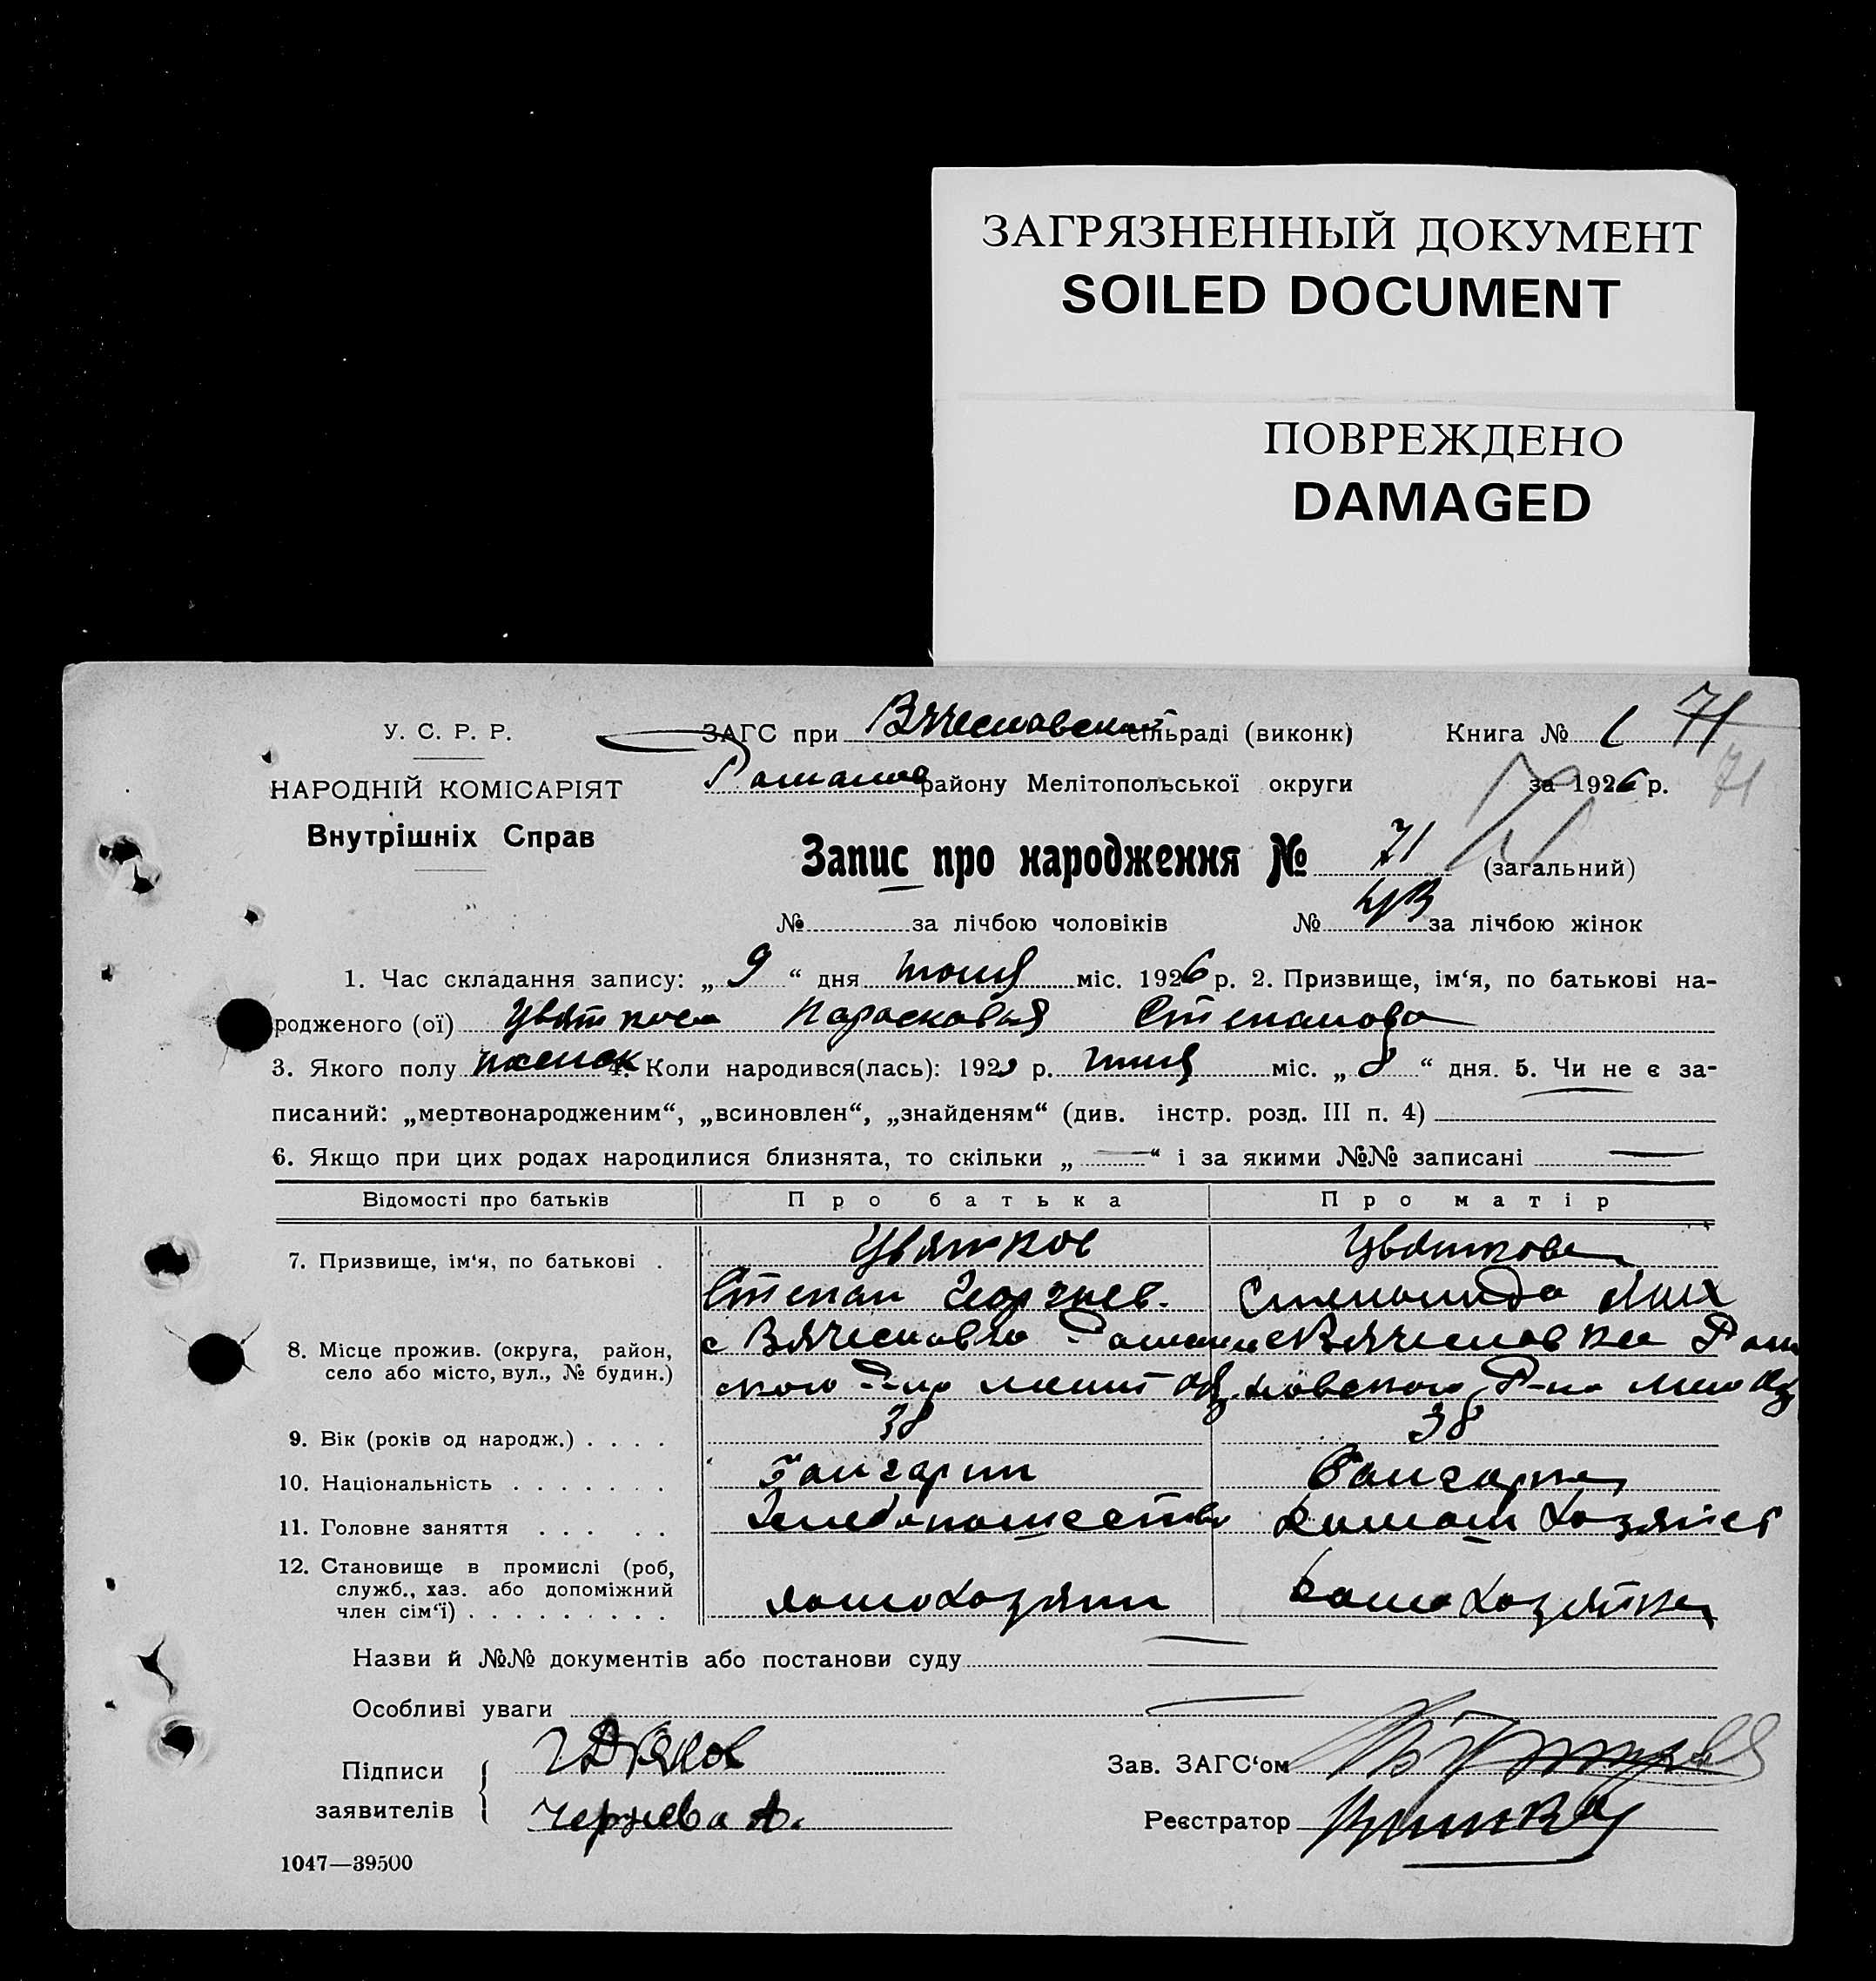 ЗАГРЯЗНЕННЫЙ ДОКУМЕНТ
SOILED DOCUMENT
ПОВРЕЖДЕНО
DAMAGED
У. С. Р. Р.
НАРОДНІЙ КОМІСАРІЯТ
Внутрішніх Справ
71
ЗАГС при Вячеславской сільраді (виконк) Книга №
району Мелітопольської округи за 1926 р. 71
Запис про народження № 71 (загальний)
№ за лічбою чоловіків № за лічбою жінок
1. Час складання запису: „ 9 “ дня міс. 1926 р. 2. Призвище, ім‘я, по батькові на-
родженого (ої) Цвяткова Парасковья Степанова
3. Якого полу женск 4. Коли народився(лась): 192 р. міс. „ 8 “ дня. 5. Чи не є за-
писаний: „мертвонародженим“, „всиновлен“, „знайденям“ (див. інстр. розд. III п. 4)
6. Якщо при цих родах народилися близнята, то скільки „ — “ і за якими №№ записані —
Відомості про батьків Про батька Про матір
7. Призвище, ім‘я, по батькові . Цвятков Цвяткова
Степан Георгиев. Степанида Мих
8. Місце прожив. (округа, район, село або місто, вул., № будин.) с Вячеславка с Вячеславка
9. Вік (років од народж.) . . . . 38 38
10. Національність . . . . . . . Болгарин Болгарка
11. Головне заняття . . . . . Хлебопашество Домаш Хозяйст
12. Становище в промислі (роб, служб., хаз. або допоміжний член сім‘ї) . . . . . . . . . домохозяин домохозяйка
Назви й №№ документів або постанови суду —
Особливі уваги —
Підписи заявителів { Зав. ЗАГС‘ом
Чернева А. Реєстратор
1047—39500